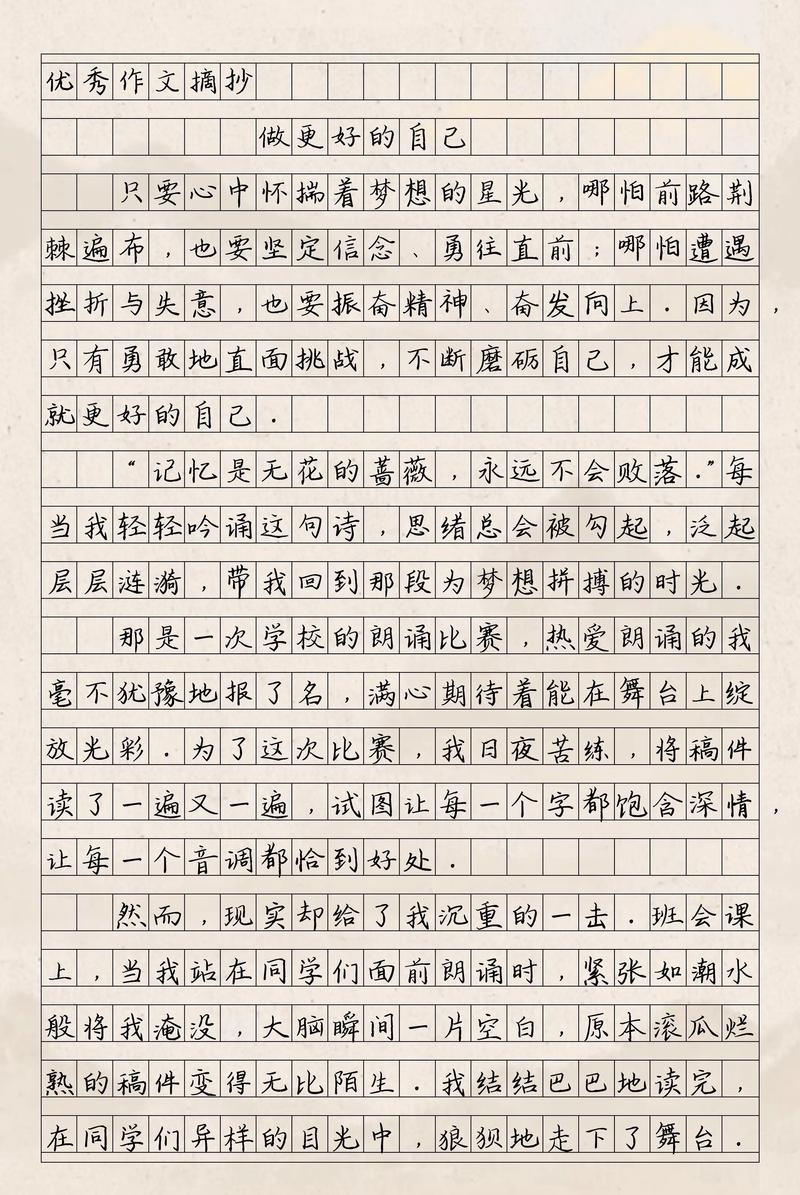 优秀作文摘抄
做更好的自己
只要心中怀揣着梦想的星光，哪怕前路荆
棘遍布，也要坚定信念、勇往直前；哪怕遭遇
挫折与失意，也要振奋精神、奋发向上．因为，
只有勇敢地直面挑战，不断磨砺自己，才能成
就更好的自己．
“记忆是无花的蔷薇，永远不会败落．”每
当我轻轻吟诵这句诗，思绪总会被勾起，泛起
层层涟漪，带我回到那段为梦想拼搏的时光．
那是一次学校的朗诵比赛，热爱朗诵的我
毫不犹豫地报了名，满心期待着能在舞台上绽
放光彩．为了这次比赛，我日夜苦练，将稿件
读了一遍又一遍，试图让每一个字都饱含深情，
让每一个音调都恰到好处．
然而，现实却给了我沉重的一击．班会课
上，当我站在同学们面前朗诵时，紧张如潮水
般将我淹没，大脑瞬间一片空白，原本滚瓜烂
熟的稿件变得无比陌生．我结结巴巴地读完，
在同学们异样的目光中，狼狈地走下了舞台．